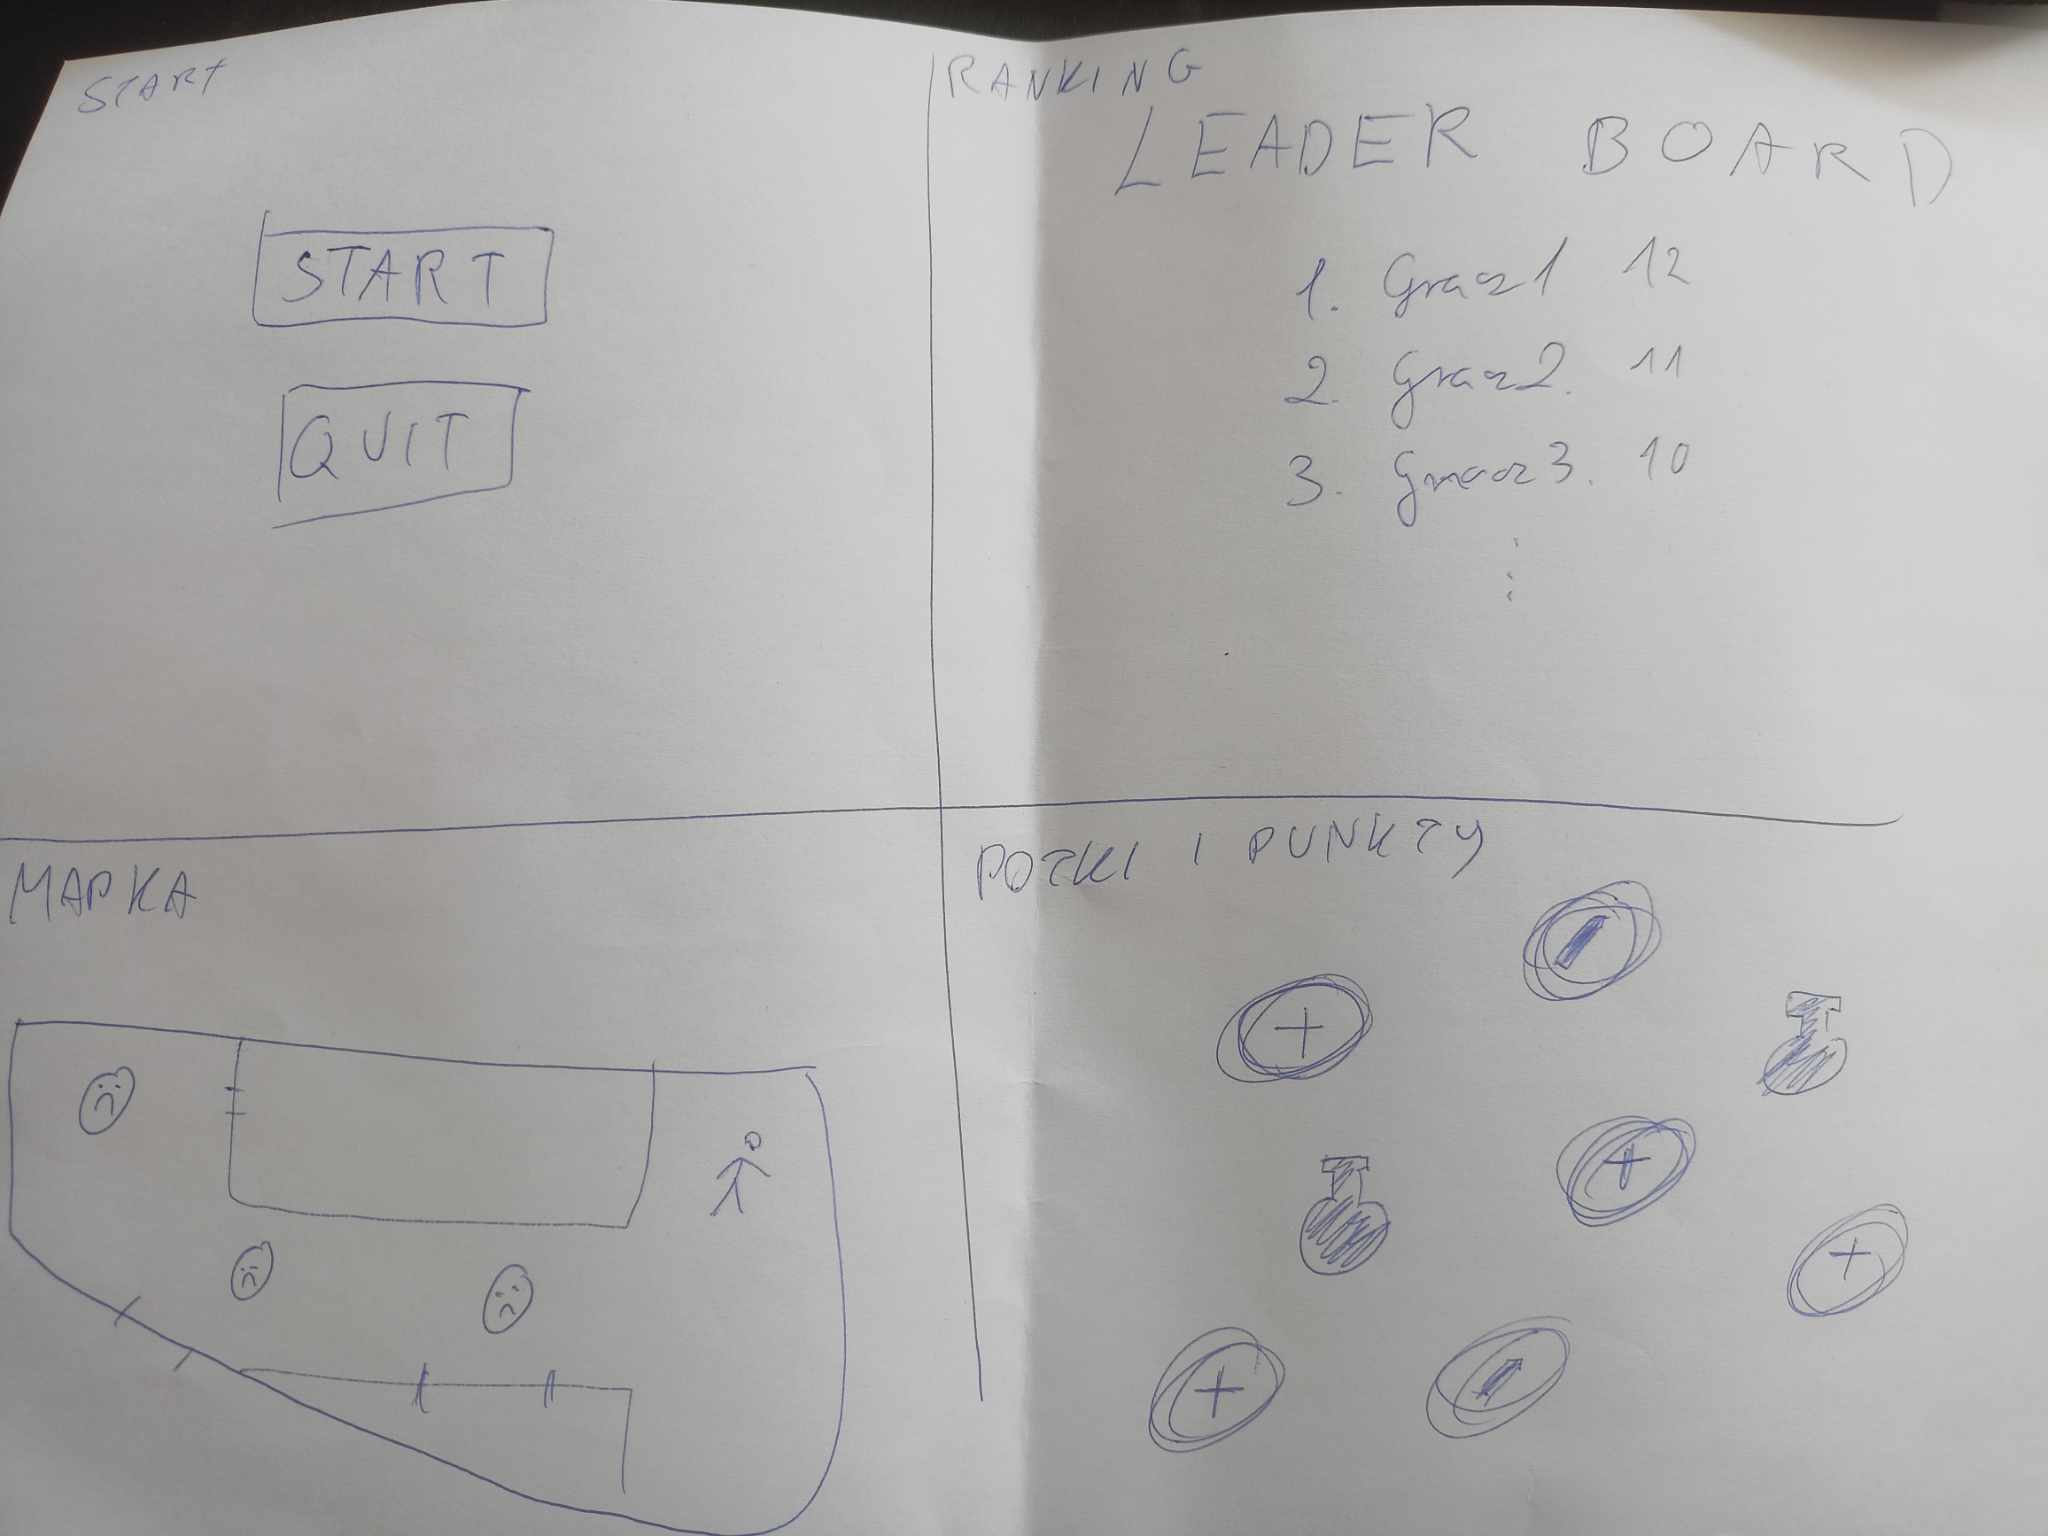 START
START
QUIT
RANKING
LEADER BOARD
1. Gracz1 12
2. Gracz2. 11
3. Gracz3. 10
MAPKA
POTKI I PUNKTY